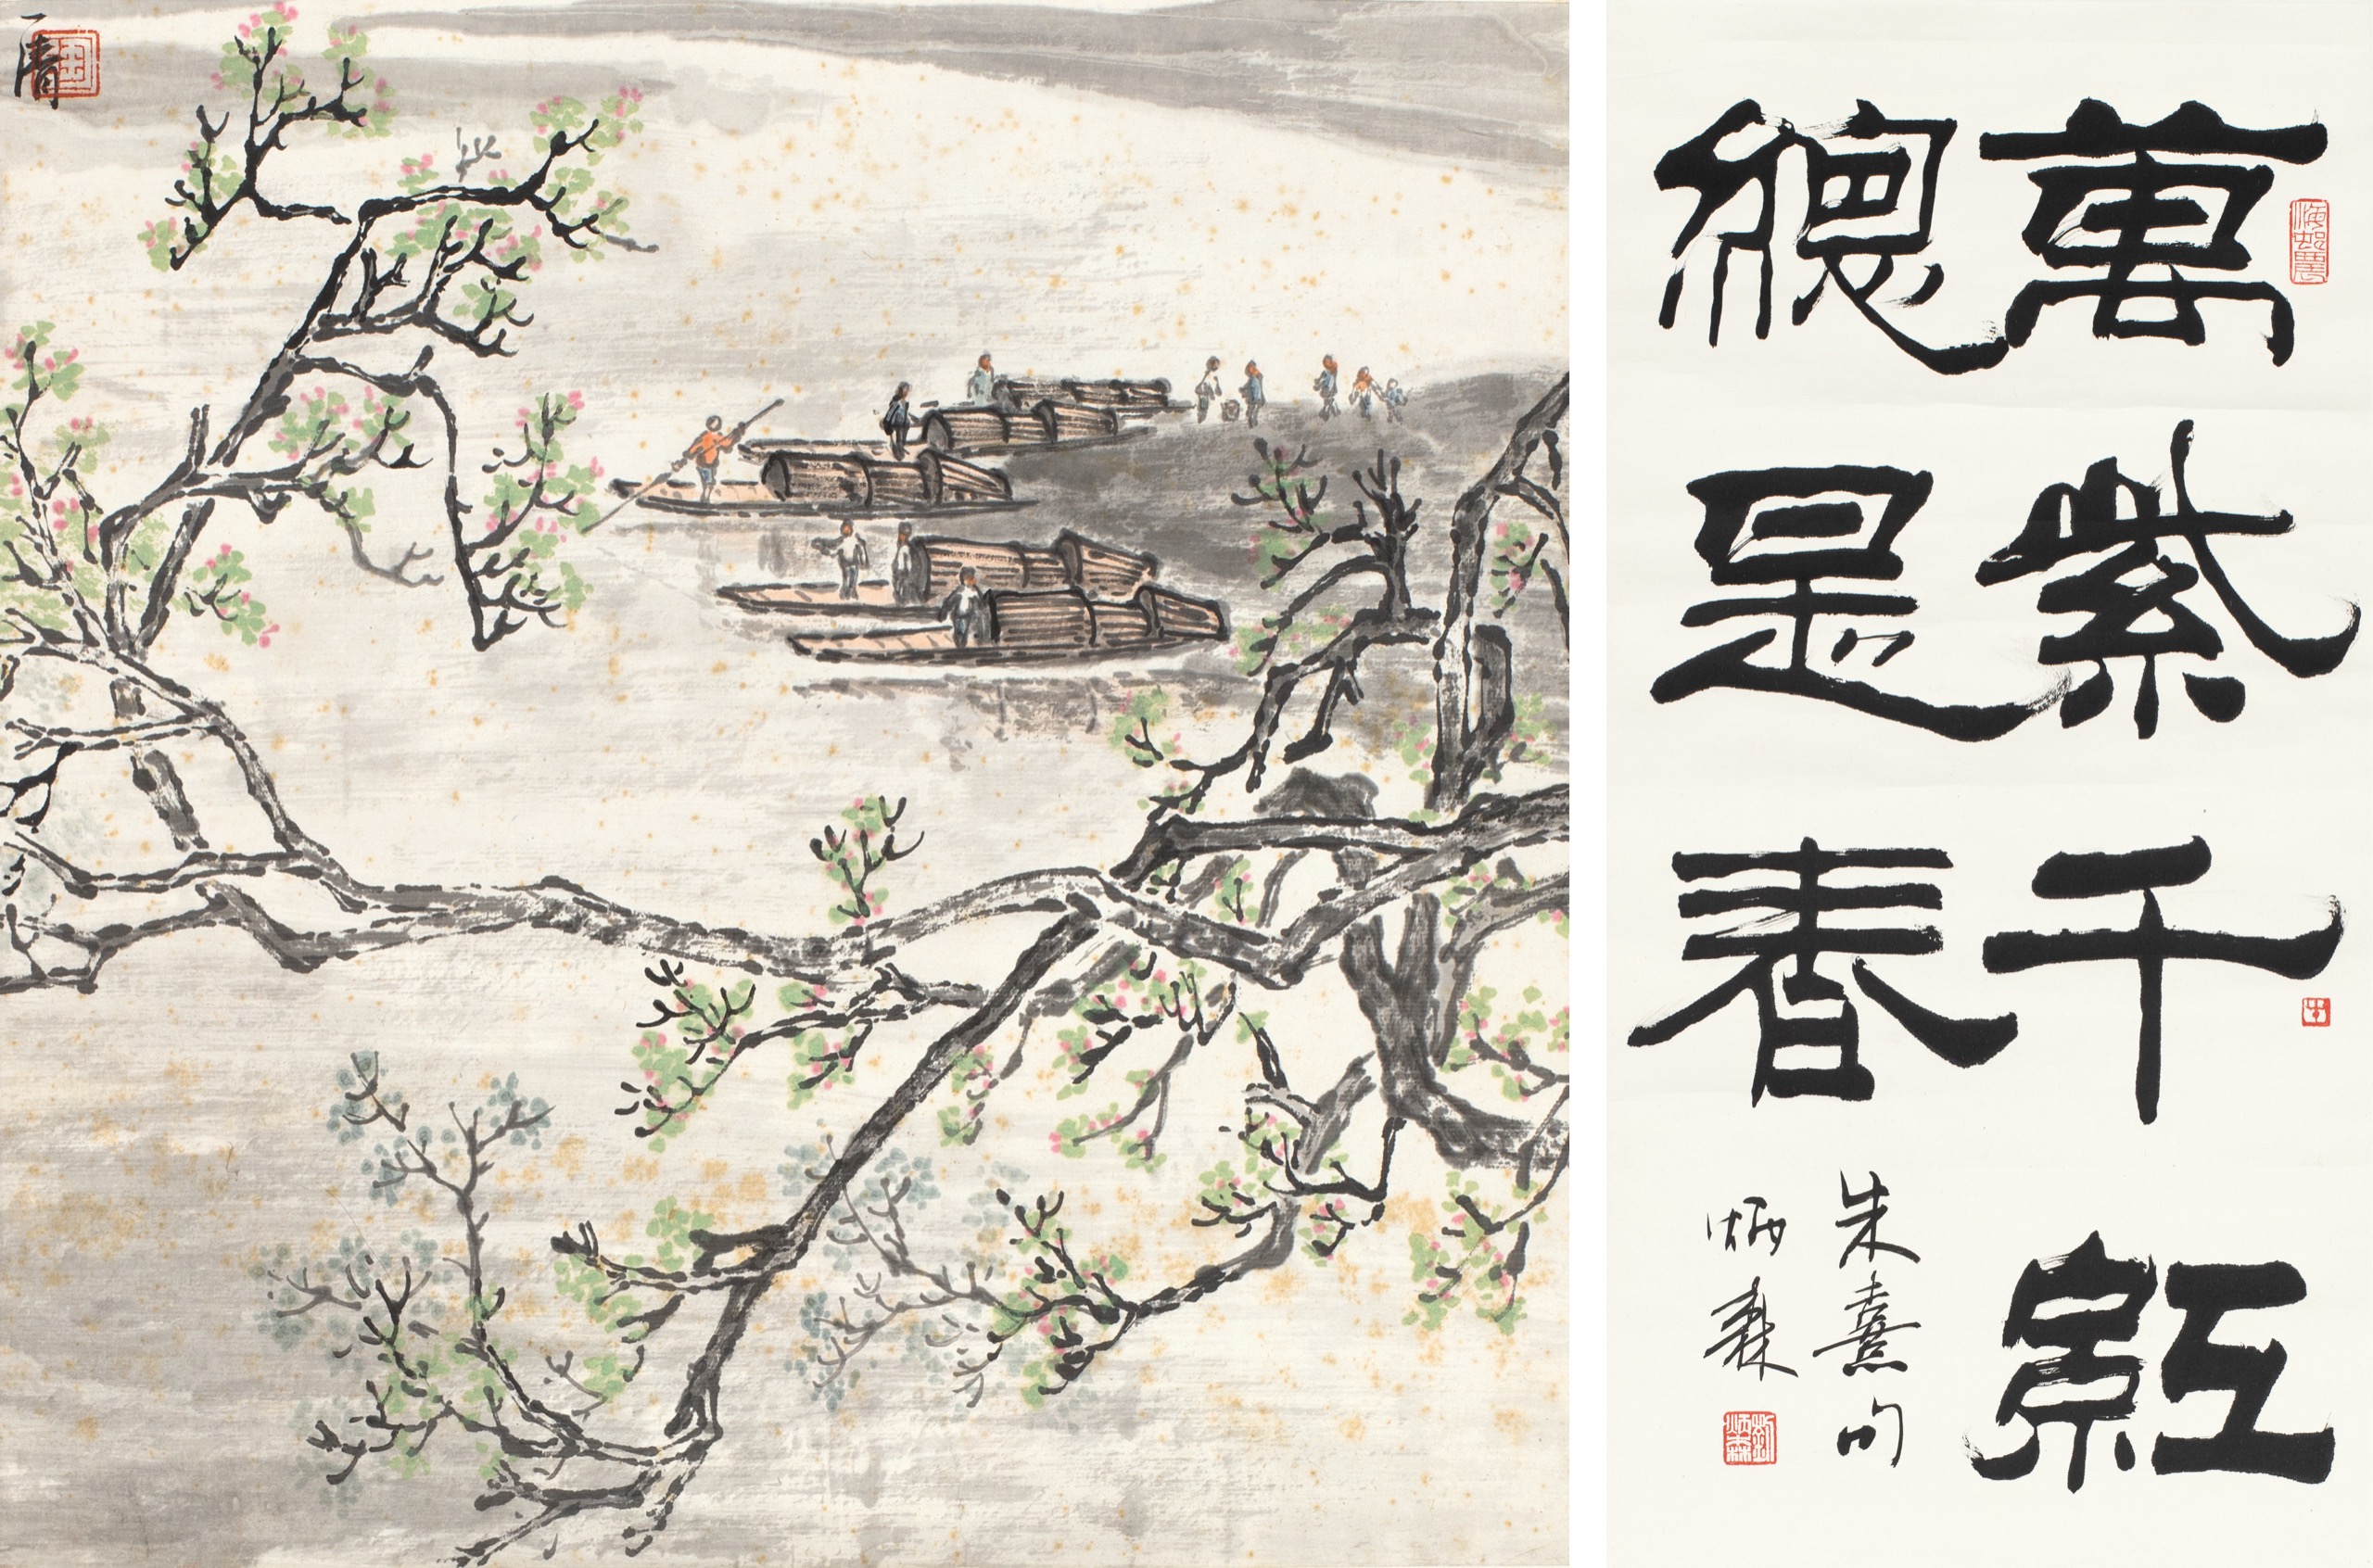 萬紫千紅
總是春
朱熹句
炳森
劉炳森